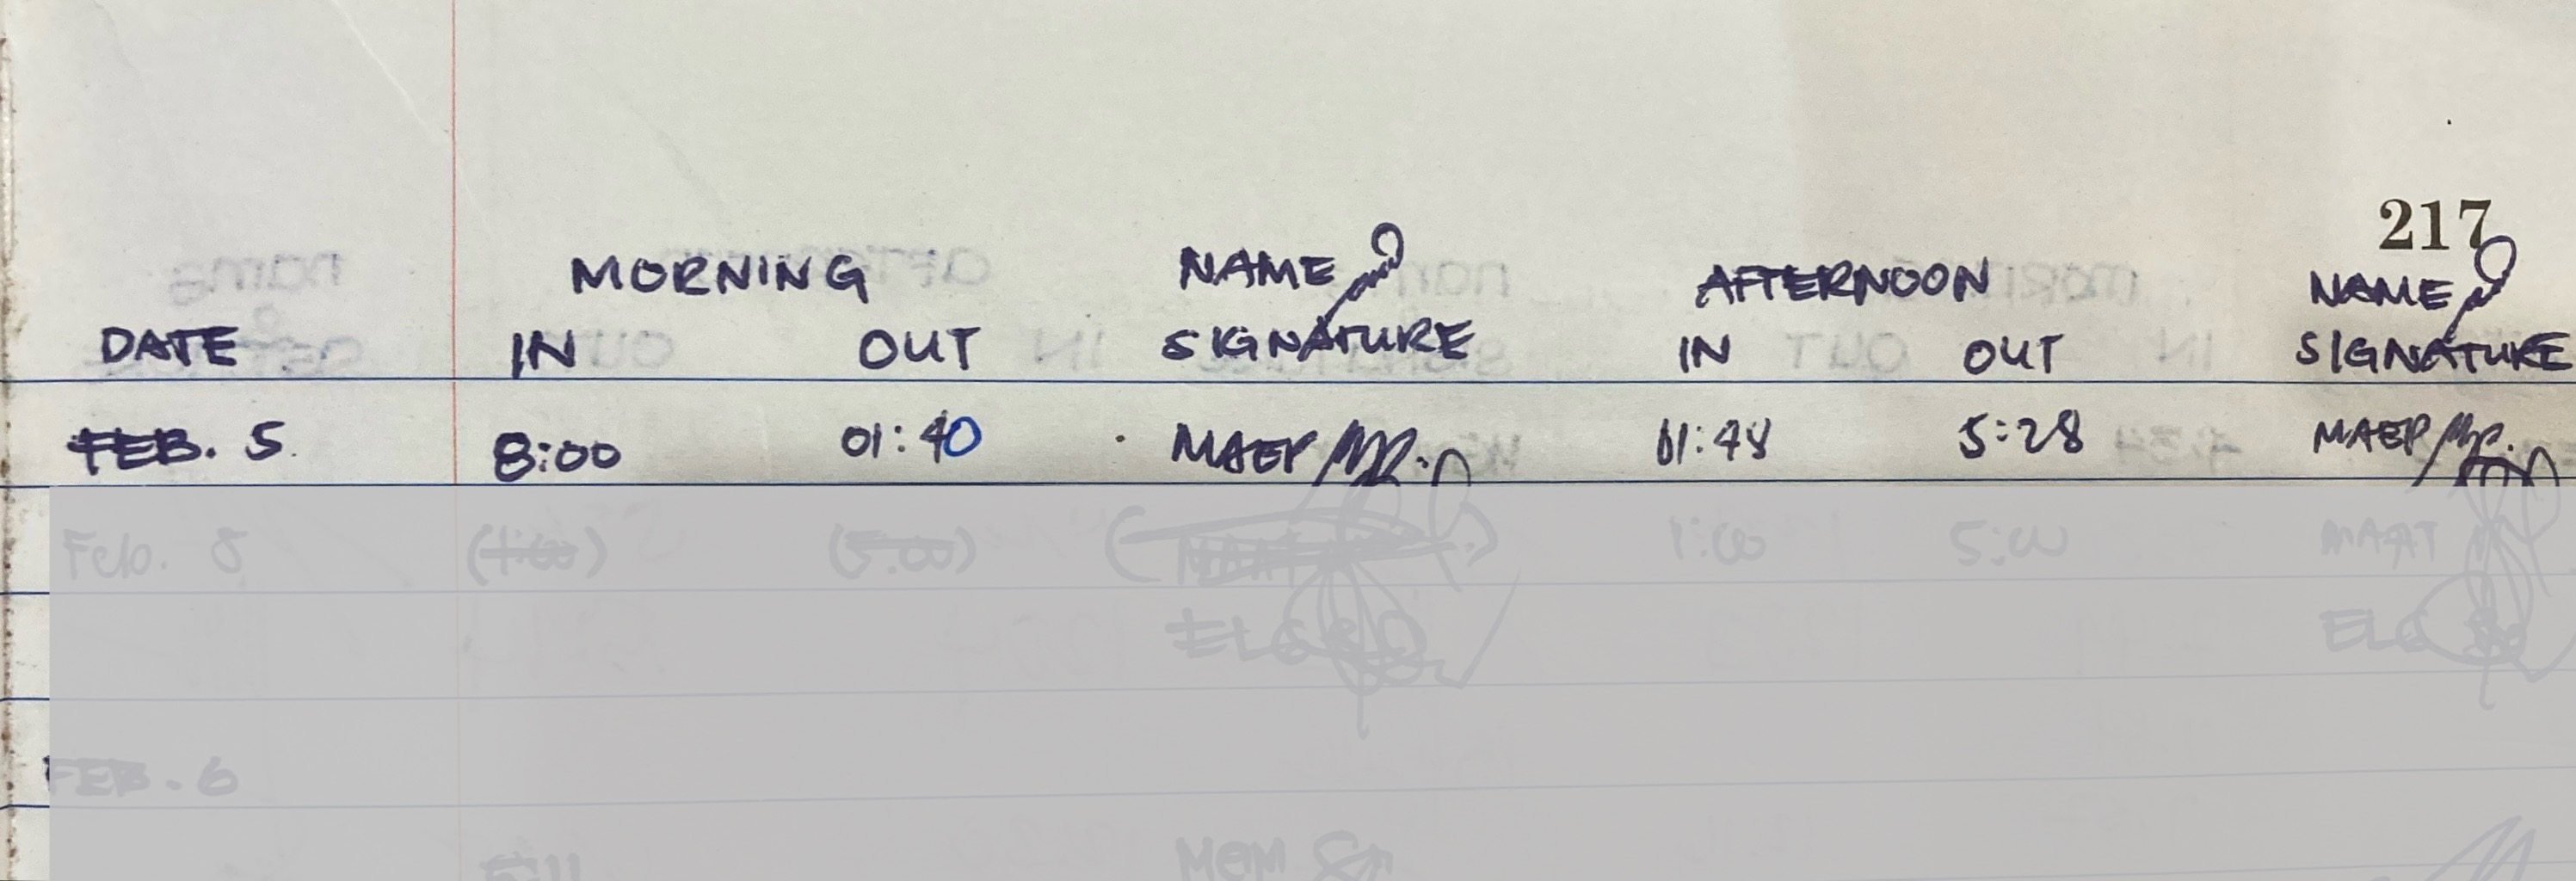 217
MORNING NAME & AFTERNOON NAME &
DATE IN OUT SIGNATURE IN OUT SIGNATURE
FEB. 5 8:00 01:40 MAEP 01:48 5:28 MAEP
Feb. 8 (1:00) (5:00) (MART) 1:00 5:00 MART
ELG ELG
FEB. 6
MGM